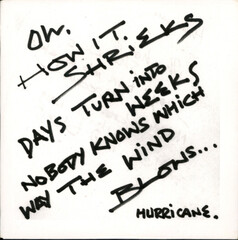 OW.
HOW IT.
SHRIEKS
DAYS TURN INTO
WEEKS
NOBODY KNOWS WHICH
WAY THE WIND
BLOWS...
HURRICANE.